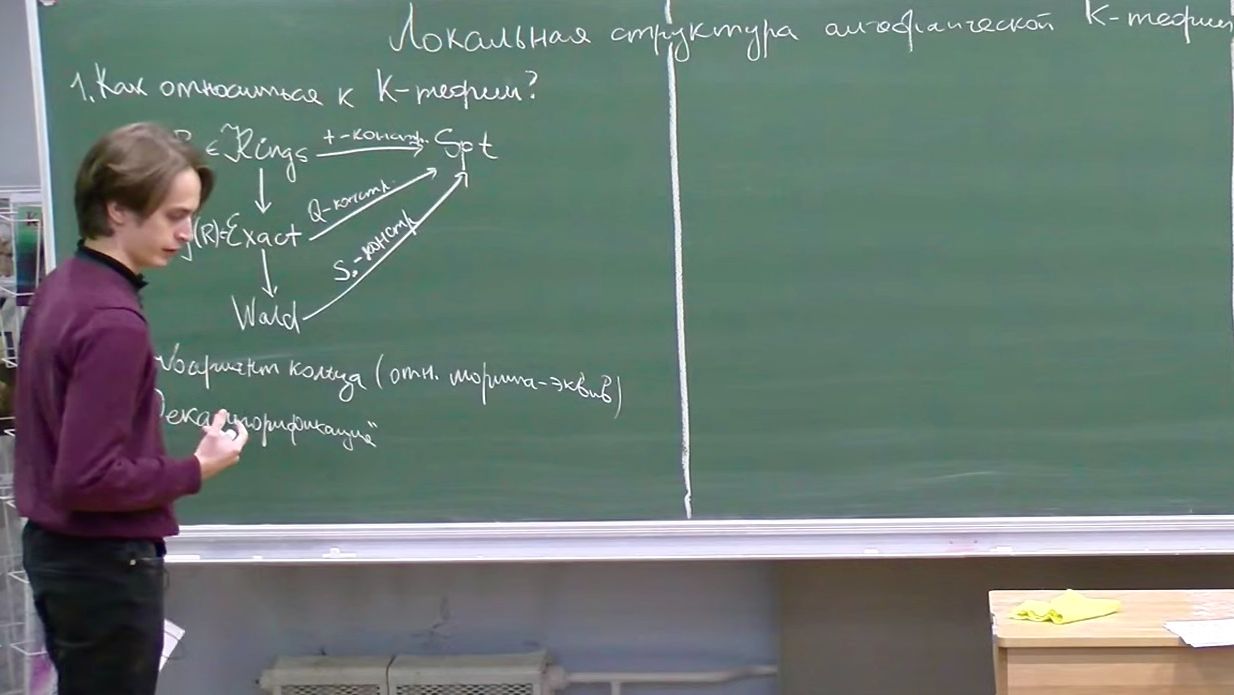 Локальная структура алгебраической К-теории
1. Как относиться к К-теории?
R ∈ Rings +-констр. Spt
(R)∈ Exact Q-констр.
Wald S.-констр.
Инвариант кольца (отн. морита-эквив)
"Декатегорификация"